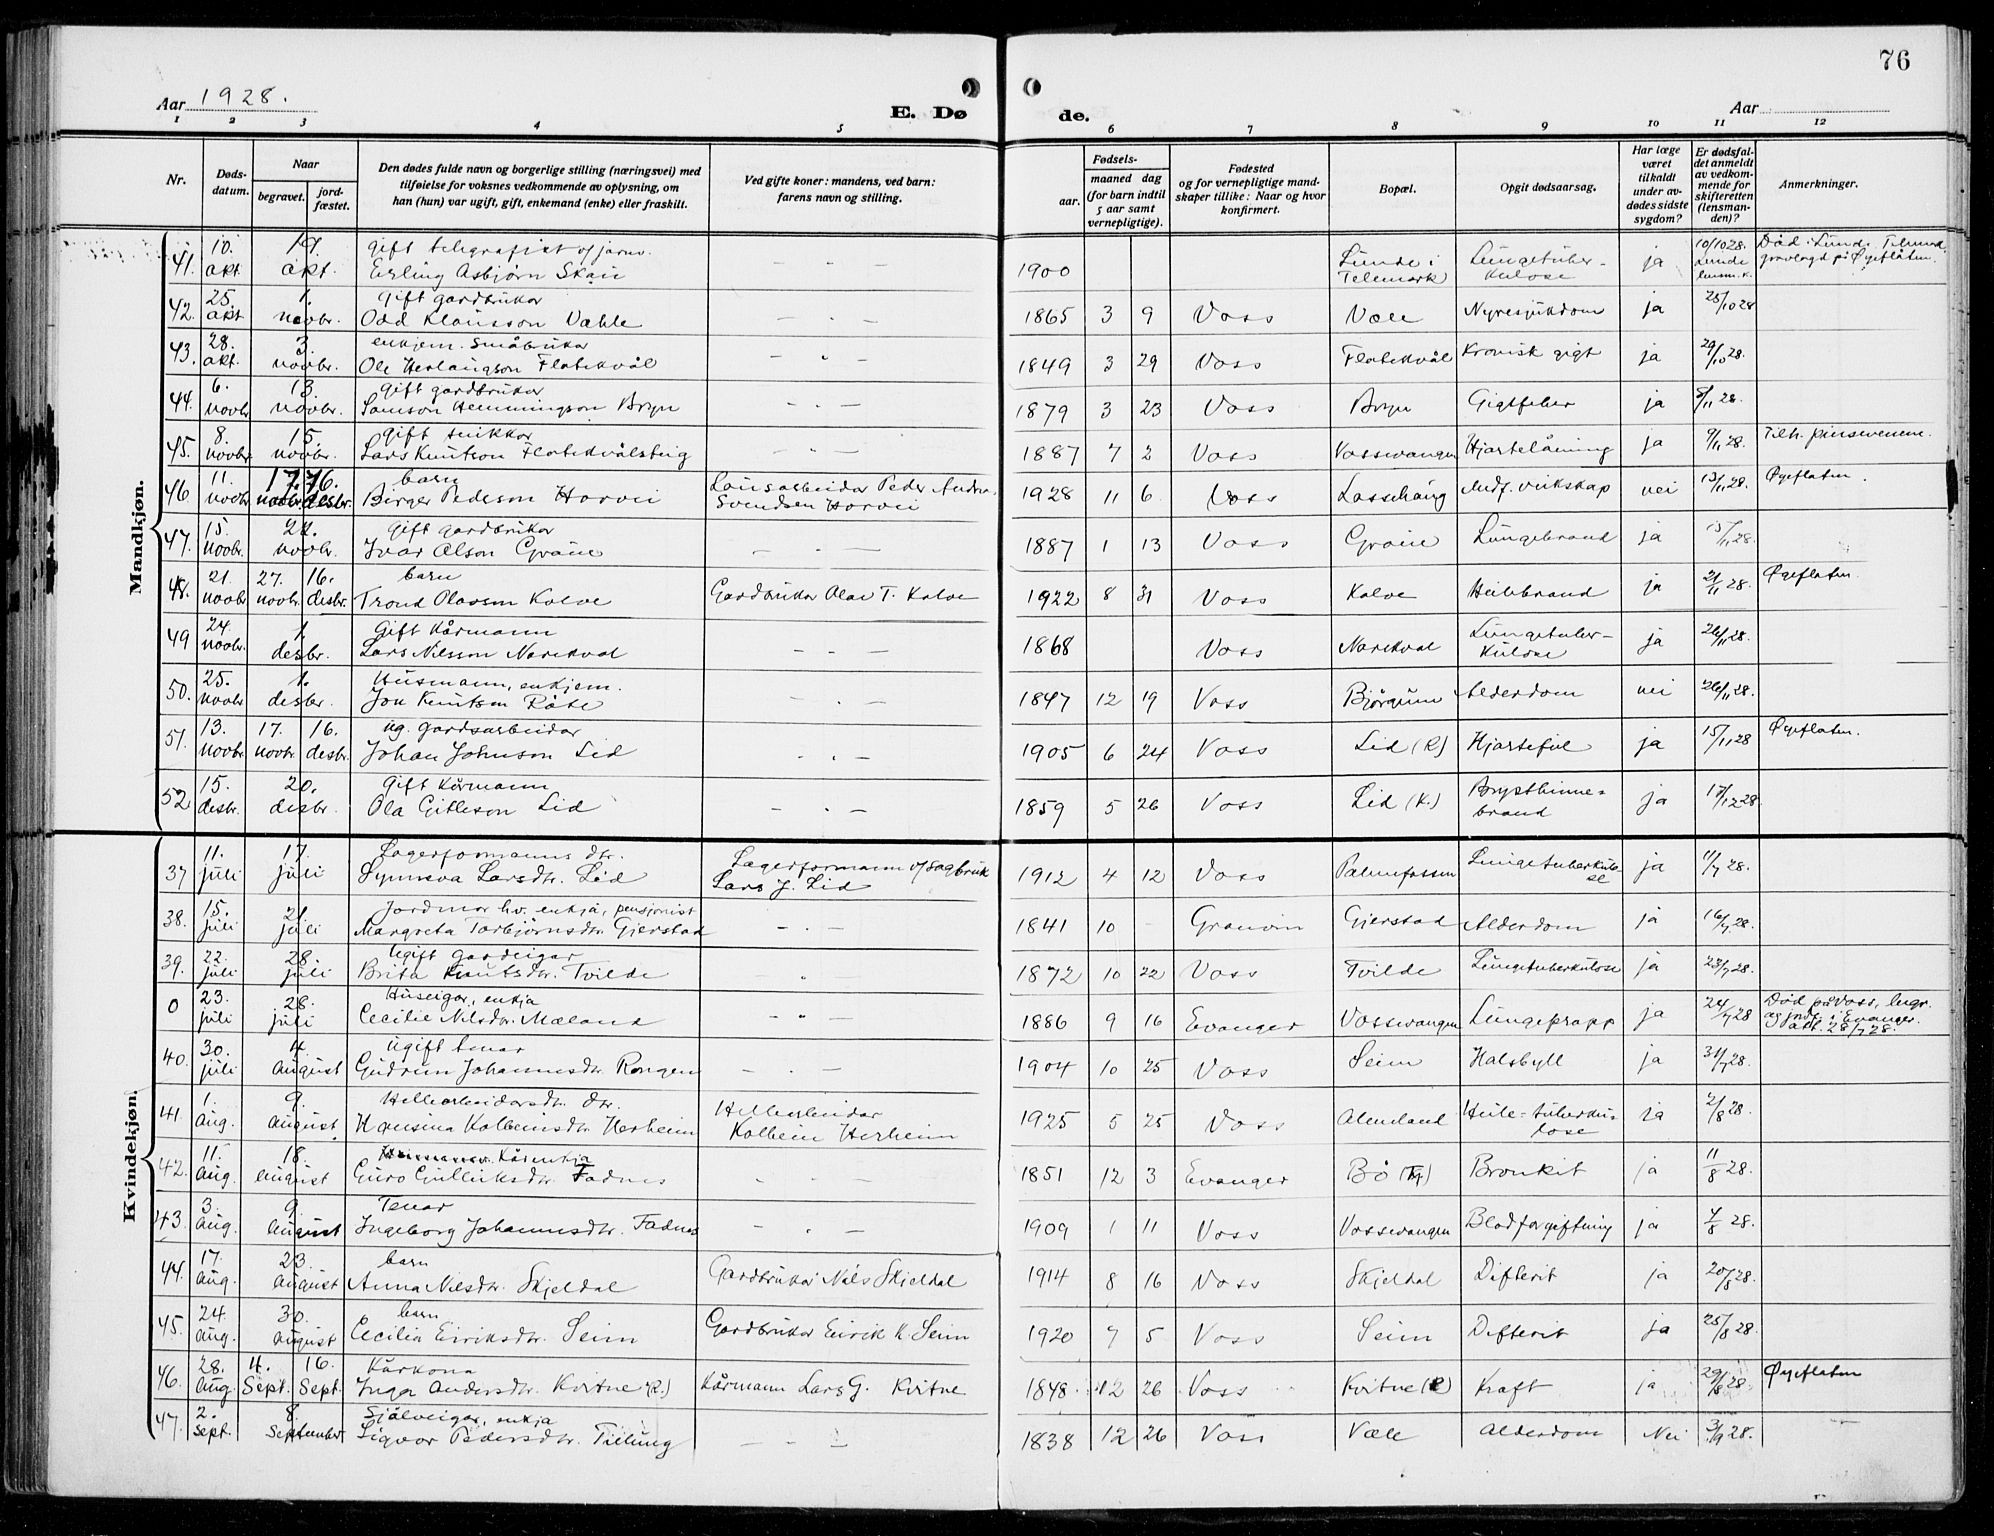 76
Aar 1928.
E. Dø
de.
Aar
1 2 3 4 5 6 7 8 9 10 11 12
Nr.
Døds-
datum.
Naar
begravet.
jord-
fæstet.
Den dødes fulde navn og borgerlige stilling (næringsvei) med
tilføielse for voksnes vedkommende av oplysning, om
han (hun) var ugift, gift, enkemand (enke) eller fraskilt.
Ved gifte koner: mandens, ved barn:
farens navn og stilling.
Fødsels-
aar.
maaned dag
(for barn indtil
5 aar samt
vernepligtige).
Fødested
og for vernepligtige mand-
skaper tillike: Naar og hvor
konfirmert.
Bopæl.
Opgit dødsaarsag.
Har læge
været
tilkaldt
under av-
dødes sidste
sygdom?
Er dødsfal-
det anmeldt
av vedkom-
mende for
skifteretten
(lensman-
den)?
Anmerkninger.
Mandkjøn.
41. 10. okt. 17. okt. Gift telegrafist v/ jarnv. 10/10 28. Død i Lunde, Telemark,
Erling Asbjørn Skau - - - 1900 Lunde i Telemark Lungetuber-kulose ja Lunde lensm.k. gravlagd på Øyeflåten.
42. 25. okt 1. novbr. Gift gardbrukar
Odd Klausson Væhle - - - 1865 3 9 Voss Væle Nyresjukdom ja 25/10 28
43. 28. okt. 3. novbr. enkjem. Småbrukar
Ole Herlaugson Flatekvål - - - 1849 3 29 Voss Flatekvål Kronisk gigt ja 29/10 28.
44. 6. novbr 13. novbr. Gift gardbrukar
Samson Hemmingson Bryn - - - 1879 3 23 Voss Bryn Gigtfeber ja 8/11 28.
45. 8. novbr 15. novbr. Gift snikkar
Lars Knutson Flatekvålsteig - - - 1887 7 2 Voss Vossevangen Hjartelåming ja 9/11 28. Tilh. pinsevenene.
46 11. novbr 17. novbr. 16. desbr. barn
Birger Pederson Horvei Lausarbeidar Peder Andr. Svendsen Horvei 1928 11 6. Voss Lassehaug Medf. veikskap nei 13/11 28. Øyeflaten.
47. 15. novbr. 22. novbr. Gift gardbrukar
Ivar Olson Graue - - - 1887 1 13 Voss Graue Lungebrand ja 15/11 28.
48. 21. novbr 27. novbr. 16. desbr. barn
Trond Olavson Kolve Gardbrukar Olav T. Kolve 1922 8 31 Voss Kolve Heilebrand ja 21/11 28. Øyeflaten.
49 24. novbr. 1. desbr. Gift Kårmann
Lars Nilsson Narekval - - - 1868 Voss Narekval Lungetuber-kulose ja 26/11 28.
50. 25. novbr 1. desbr. Husmann, enkjem.
Jon Knutson Røte - - 1847 12 19 Voss Bjørgum Alderdom nei 26/11 28.
51. 13. novbr. 17. novbr. 16. desbr. ug. gardsarbeidar
Johan Johnson Lid - - - 1905 6 24 Voss Lid (R) Hjartefeil ja 15/11 28 Øyeflaten.
52 15. desbr. 20. desbr. Gift Kårmann
Ola Gitleson Lid - - - 1859 5 26 Voss Lid (K.) Brysthinne-brand ja 17/12 28
Kvindekjøn.
37 11. juli 17. juli Lagerformanns dtr.
Synneva Larsdtr. Lid Lagerformann v/ sagbruk Lars J. Lid 1912 4 12 Voss Palmefossen Lungetuberkulose ja 11/7 28.
38. 15. juli 21. juli Jordmor hv. enkja, pensjonist
Margreta Torbjørnsdtr. Gjerstad - - - 1841 10 - Granvin Gjerstad Alderdom ja 16/7 28.
39. 22. juli 28. juli Ugift gardeigar
Brita Knutsdtr. Tvilde - 1872 10 22 Voss Tvilde Lungetuberkulose ja 23/7 28.
0 23. juli 28. juli Huseigar, enkja
Cecilie Nilsdtr. Mæland - " - 1886 9 16 Evanger Vossevangen Lungepropp ja 24/7 28 Død på Voss, begr. og jordf. i Evanger. att. 28/7 28.
40. 30. juli 4. august Ugift tenar
Gudrun Johannesdtr. Rongen - - - 1904 10 25 Voss Seim Halsbyll ja 31/7 28.
41. 1. aug. 9. august Hellearbeidarsdtr. dtr.
Hansina Kolbeinsdtr. Herheim Hellearbeidar Kolbein Herheim 1925 5 25 Voss Almeland Heile-tuberku-lose ja 2/8 28.
42. 11. aug. 18. august Kårenkja
Guro Gulleiksdtr. Fadnes - - 1851 12 3 Evanger Bø Bronkit ja 11/8 28.
43. 3. aug. 9. august Tenar
Ingeborg Johannesdtr. Fadnes - - - 1909 1 11 Voss Vossevangen Blodforgiftning ja 4/8 28.
44. 17. aug. 23. august barn
Anna Nilsdtr. Skjeldal Gardbrukar Nils Skjeldal 1914 8 16 Voss Skjeldal Difterit ja 20/8 28.
45. 24. aug. 30. august barn
Cecilia Eiriksdtr. Seim Gardbrukar Eirik K. Seim 1920 7 5 Voss Seim Difterit ja 25/8 28.
46. 28. aug. 4. Sept. 16. Sept. Kårkona
Inga Andersdtr. Kvitne (R.) Kårmann Lars G. Kvitne 1848. 12 26 Voss Kvitne (R) Kraft ja 29/8 28. Øyeflaten
47. 2. sept. 8. September Sjålveigar, enkja
Sigvor Pedersdtr. Tillung - - - 1838 12 26 Voss Væle Alderdom Nei 3/9 28. -